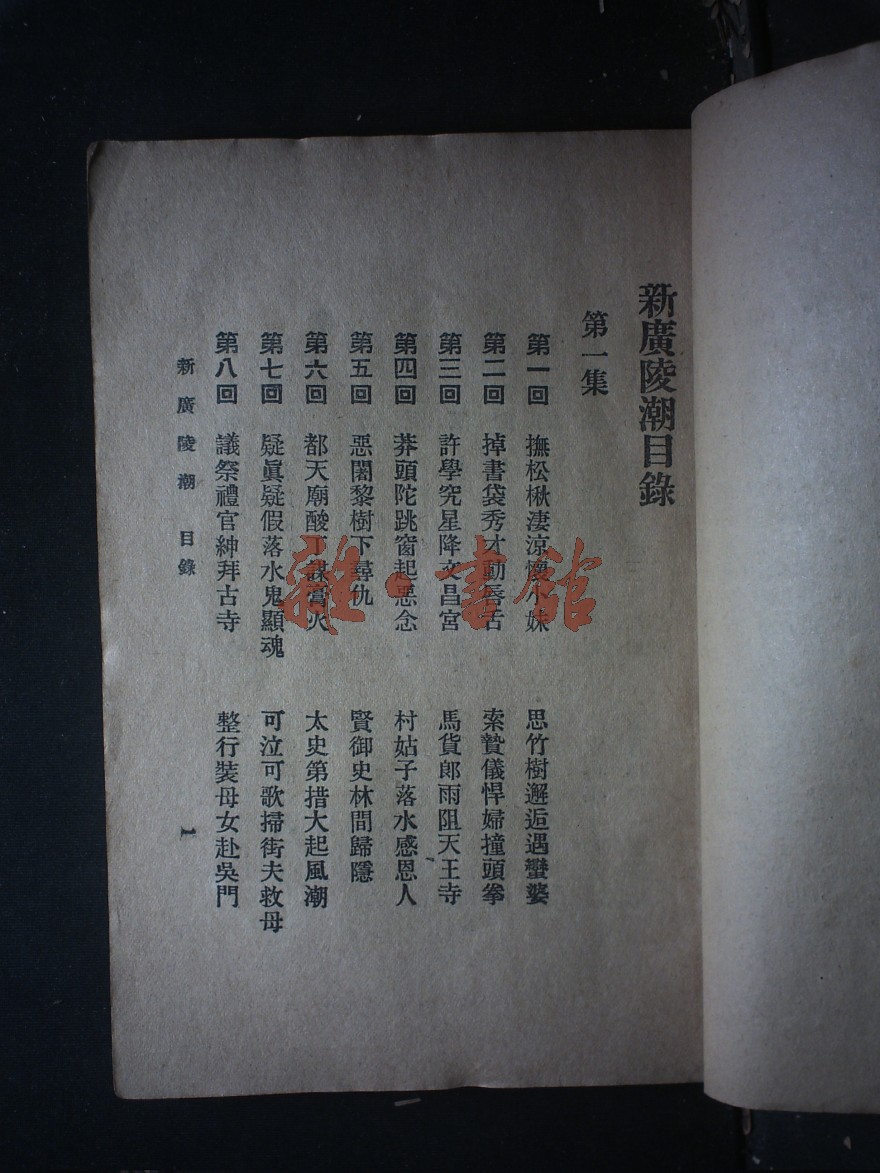 新廣陵潮目錄
第一集
第一回 撫松楸淒涼懷小妹 思竹樹邂逅遇蠻婆
第二回 掉書袋秀才動唇舌 索贄儀悍婦撞頭拳
第三回 許學究星降文昌宮 馬貨郎雨阻天王寺
第四回 莽頭陀跳窗起惡念 村姑子落水感恩人
第五回 惡闍黎樹下尋仇 賢御史林間歸隱
第六回 都天廟酸丁談賞火 太史第措大起風潮
第七回 疑眞疑假落水鬼顯魂 可泣可歌掃街夫救母
第八回 議祭禮官紳拜古寺 整行裝母女赴吳門
新廣陵潮 目錄 1
雜·書館